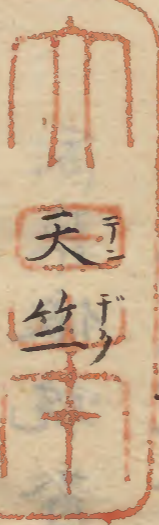 天竺
テンヂク